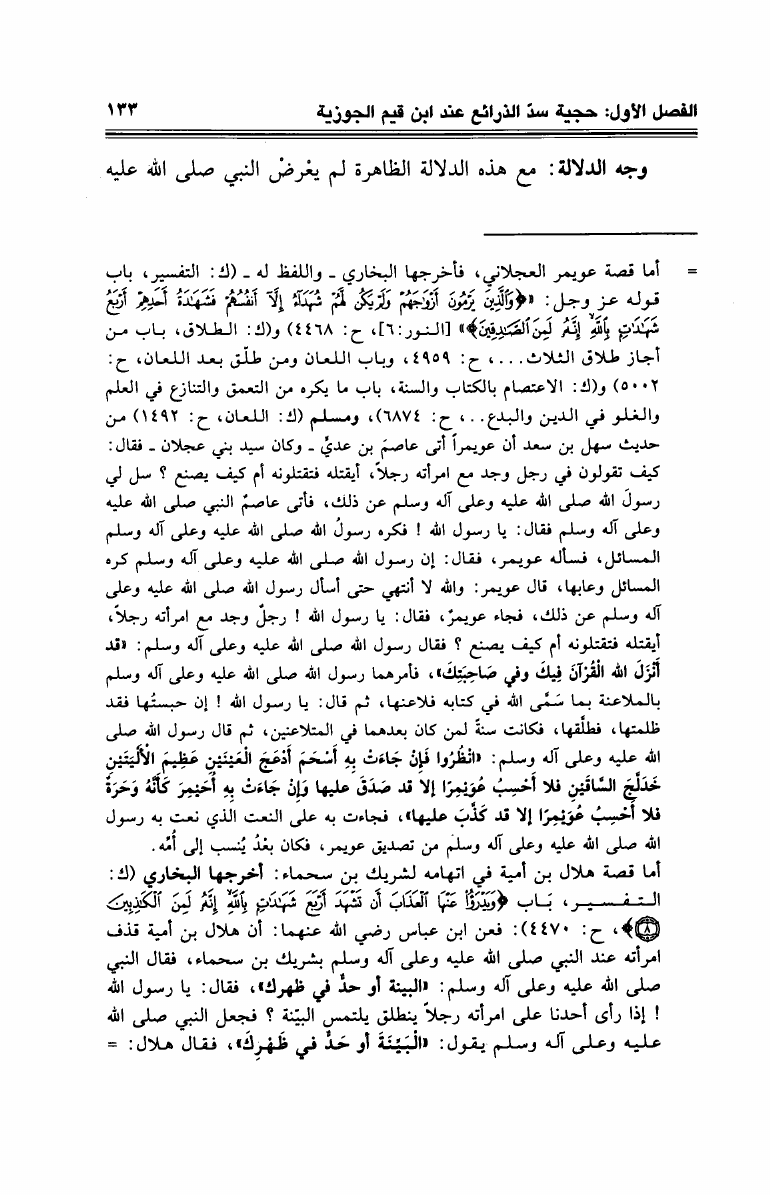 الفصل الأول: حجية سدّ الذرائع عند ابن قيم الجوزية ١٣٣
وجه الدلالة: مع هذه الدلالة الظاهرة لم يعْرِضْ النبي صلى الله عليه
= أما قصة عويمر العجلاني، فأخرجها البخاري ـ واللفظ له ـ (ك: التفسير، باب
قوله عز وجل: «﴿وَٱلَّذِينَ يَرْمُونَ أَزْوَٰجَهُمْ وَلَمْ يَكُن لَّهُمْ شُهَدَآءُ إِلَّآ أَنفُسُهُمْ فَشَهَٰدَةُ أَحَدِهِمْ أَرْبَعُ
شَهَٰدَٰتٍۭ بِٱللَّهِ إِنَّهُۥ لَمِنَ ٱلصَّٰدِقِينَ﴾» [النور:٦]، ح: ٤٤٦٨) و(ك: الطلاق، باب من
أجاز طلاق الثلاث...، ح: ٤٩٥٩، وباب اللعان ومن طلّق بعد اللعان، ح:
٥٠٠٢) و(ك: الاعتصام بالكتاب والسنة، باب ما يكره من التعمق والتنازع في العلم
والغلو في الدين والبدع..، ح: ٦٨٧٤)، ومسلم (ك: اللعان، ح: ١٤٩٢) من
حديث سهل بن سعد أن عويمراً أتى عاصمَ بن عديٍّ ـ وكان سيد بني عجلان ـ فقال:
كيف تقولون في رجل وجد مع امرأته رجلاً، أيقتله فتقتلونه أم كيف يصنع ؟ سل لي
رسولَ الله صلى الله عليه وعلى آله وسلم عن ذلك، فأتى عاصمٌ النبي صلى الله عليه
وعلى آله وسلم فقال: يا رسول الله ! فكره رسولُ الله صلى الله عليه وعلى آله وسلم
المسائل، فسأله عويمر، فقال: إن رسول الله صلى الله عليه وعلى آله وسلم كره
المسائل وعابها، قال عويمر: والله لا أنتهي حتى أسأل رسول الله صلى الله عليه وعلى
آله وسلم عن ذلك، فجاء عويمرٌ، فقال: يا رسول الله ! رجلٌ وجد مع امرأته رجلاً،
أيقتله فتقتلونه أم كيف يصنع ؟ فقال رسول الله صلى الله عليه وعلى آله وسلم: «قد
أَنْزَلَ الله الْقُرْآنَ فِيكَ وفي صَاحِبَتِكَ»، فأمرهما رسول الله صلى الله عليه وعلى آله وسلم
بالملاعنة بما سَمَّى الله في كتابه فلاعنها، ثم قال: يا رسول الله ! إن حبستُها فقد
ظلمتها، فطلَّقها، فكانت سنةً لمن كان بعدهما في المتلاعنين، ثم قال رسول الله صلى
الله عليه وعلى آله وسلم: «انْظُرُوا فَإِنْ جَاءَتْ بِهِ أَسْحَمَ أَدْعَجَ الْعَيْنَيْنِ عَظِيمَ الْأَلْيَتَيْنِ
خَدَلَّجَ السَّاقَيْنِ فلا أَحْسِبُ عُوَيْمِرًا إلا قد صَدَقَ عليها وَإِنْ جَاءَتْ بِهِ أُحَيْمِرَ كَأَنَّهُ وَحَرَةٌ
فلا أَحْسِبُ عُوَيْمِرًا إلا قد كَذَبَ عليها»، فجاءت به على النعت الذي نعت به رسول
الله صلى الله عليه وعلى آله وسلم من تصديق عويمر، فكان بعْدُ يُنسب إلى أُمّه.
أما قصة هلال بن أمية في اتهامه لشريك بن سحماء: أخرجها البخاري (ك:
التفسير، بَاب ﴿وَيَدْرَؤُا۟ عَنْهَا ٱلْعَذَابَ أَن تَشْهَدَ أَرْبَعَ شَهَٰدَٰتٍۭ بِٱللَّهِ إِنَّهُۥ لَمِنَ ٱلْكَٰذِبِينَ
٨﴾، ح: ٤٤٧٠): فعن ابن عباس رضي الله عنهما: أن هلال بن أمية قذف
امرأته عند النبي صلى الله عليه وعلى آله وسلم بشريك بن سحماء، فقال النبي
صلى الله عليه وعلى آله وسلم: «البينة أو حدٌّ في ظهرك»، فقال: يا رسول الله
! إذا رأى أحدنا على امرأته رجلاً ينطلق يلتمس البيّنة ؟ فجعل النبي صلى الله
عليه وعلى آله وسلم يقول: «الْبَيِّنَةَ أو حَدٌّ في ظَهْرِكَ»، فقال هلال: =